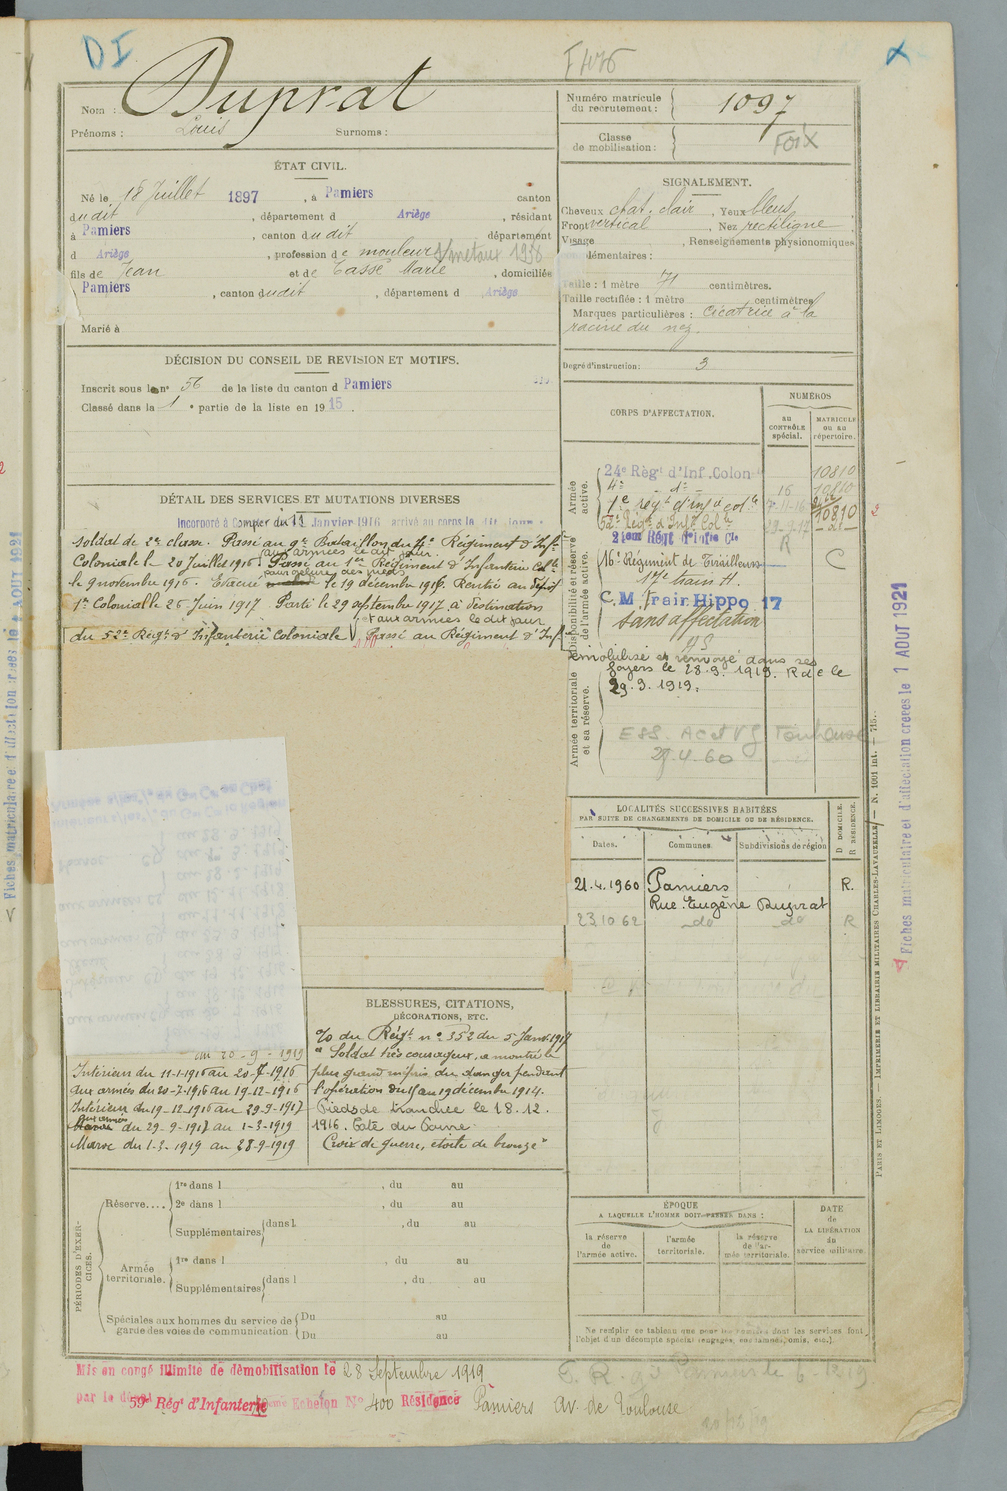 DI
F406
X
Nom : Duprat
Prénoms : Louis Surnoms :
Numéro matricule du recrutement : 1097
Classe de mobilisation : FOIX
ÉTAT CIVIL.
Né le 18 Juillet 1897, à Pamiers canton
dudit, département d Ariège, résidant
à Pamiers, canton dudit département
d Ariège, profession de mouleur s/métaux 1936
fils de Jean et de Tasse Marie, domiciliés
Pamiers, canton dudit, département d Ariège
Marié à
SIGNALEMENT.
Cheveux chat. clair, Yeux bleus,
Front vertical, Nez rectiligne,
Visage, Renseignements physionomiques
lémentaires :
Taille : 1 mètre 71 centimètres.
Taille rectifiée : 1 mètre centimètres
Marques particulières : Cicatrice à la
racine du nez.
Degré d'instruction : 3
DÉCISION DU CONSEIL DE REVISION ET MOTIFS.
Inscrit sous le n° 56 de la liste du canton d Pamiers
Classé dans la 1e partie de la liste en 1915.
DÉTAIL DES SERVICES ET MUTATIONS DIVERSES
Incorporé à compter du 11 Janvier 1916 arrivé au corps le dit jour
soldat de 2e classe. Passé au 9e Bataillon du 4e Régiment d'Infie
aux armées le dit jour.
Coloniale le 20 Juillet 1916. Passé au 1er Régiment d'Infanterie Colle
pour gelure des pieds
le 9 novembre 1916. Evacué le 19 décembre 1916. Rentré au Dépôt
1er Colonial le 26 Juin 1917 Parti le 29 septembre 1917 à destination
et aux armées le dit jour
du 52e Régt d'Infanterie Coloniale Passé au Régiment d'Inf
CORPS D'AFFECTATION.
NUMÉROS
au CONTRÔLE spécial.
MATRICULE OU AU répertoire.
Armée active.
24e Régt d'Inf. Colon 10810
4e d° 16 10810
1e régt d'infie colle 7-11-16 10810
52e Régt d'Infie Colle 29-9-17 -d°-
21eme Régt d'Infie Cle R
Disponibilité et réserve de l'armée active.
16e Régiment de Tirailleurs C
17e train H.
C.M Train Hippo 17
sans affectation
démobilisé et renvoyé dans ses
foyers le 28.9.1919. Rdé le
29.9.1919.
Armée territoriale et sa réserve.
ESS. AC et VG Toulouse
29.4.60
LOCALITÉS SUCCESSIVES HABITÉES
PAR SUITE DE CHANGEMENTS DE DOMICILE OU DE RÉSIDENCE.
D DOMICILE. R RÉSIDENCE.
Dates. Communes. Subdivisions de région
21.4.1960 Pamiers R.
Rue Eugène Duprat
23.10.62 -do -do R
du 20-9-1919
Intérieur du 11-1-1916 au 20-7-1916
aux armées du 20-7-1916 au 19-12-1916
Intérieur du 19-12-1916 au 29-9-1917
aux armées du 29-9-1917 au 1-3-1919
Maroc du 1-3-1919 au 28-9-1919
BLESSURES, CITATIONS,
DÉCORATIONS, ETC.
o/o du Régt n° 352 du 5 Janv. 1917
" Soldat très courageux, a montré le
plus grand mépris du danger pendant
l'opération du 15 au 19 décembre 1914.
Pieds de tranchée le 18.12.
1916. Côte du Poivre
Croix de guerre, étoile de bronze"
PÉRIODES D'EXERCICES.
Réserve....
1re dans l , du au
2e dans l , du au
Supplémentaires dans l , du au
Armée territoriale.
1re dans l , du au
Supplémentaires dans l , du au
Spéciales aux hommes du service de garde des voies de communication.
Du au
Du au
ÉPOQUE
A LAQUELLE L'HOMME DOIT PASSER DANS :
la réserve de l'armée active.
l'armée territoriale.
la réserve de l'armée territoriale.
DATE de LA LIBÉRATION du service militaire.
Ne remplir ce tableau que pour les hommes dont les services font
l'objet d'un décompte spécial (engagés, condamnés, omis, etc.).
Mis en congé illimité de démobilisation le 28 Septembre 1919
par le dépôt 59e Régt d'Infanterie Echelon N° 400 Résidence Pamiers Av. de Toulouse
20/12/19
Fiches matriculaire et d'affectation créées le 1 AOUT 1921
Fiches matriculaire et d'affectation créées le 1 AOUT 1921
PARIS ET LIMOGES. — IMPRIMERIE ET LIBRAIRIE MILITAIRES CHARLES-LAVAUZELLE. — N. 1001 int. — 715.